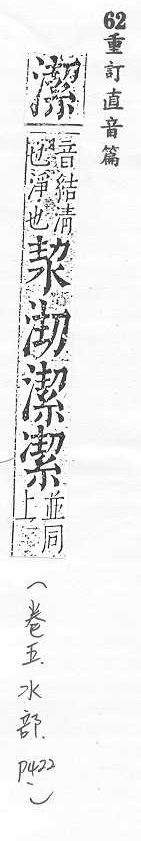 62重訂直音篇
潔
音結清
也淨也
洯潔㓗
並同
上
(卷五.水部.P422.)